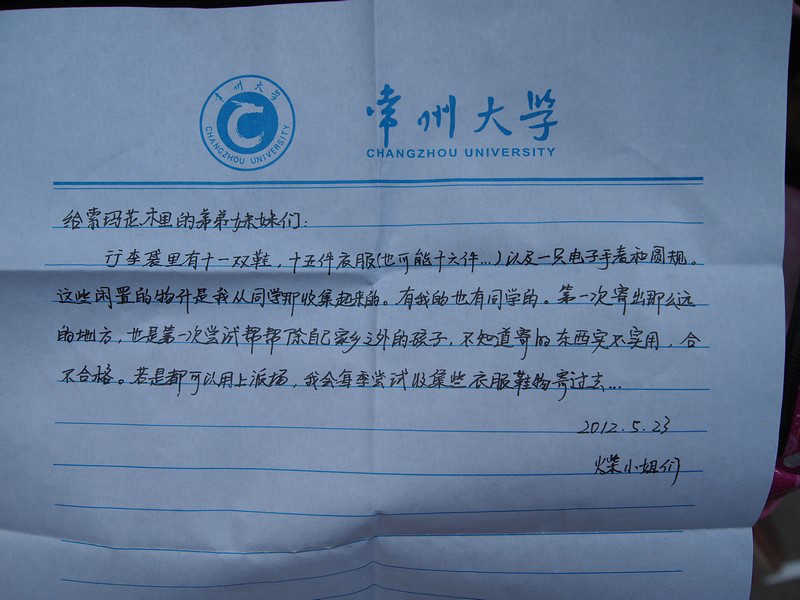 常州大学
CHANGZHOU UNIVERSITY
常州大学
CHANGZHOU UNIVERSITY
给索玛花木里的弟弟妹妹们：
行李袋里有十一双鞋，十五件衣服(也可能十六件...)以及一只电子手表和圆规。
这些闲置的物件是我从同学那收集起来的。有我的也有同学的。第一次寄出那么远
的地方，也是第一次尝试帮帮除自己家乡之外的孩子，不知道寄的东西实不实用，合
不合格。若是都可以用上派场，我会每季尝试收集些衣服鞋物寄过去...
2012.5.23
小姐们